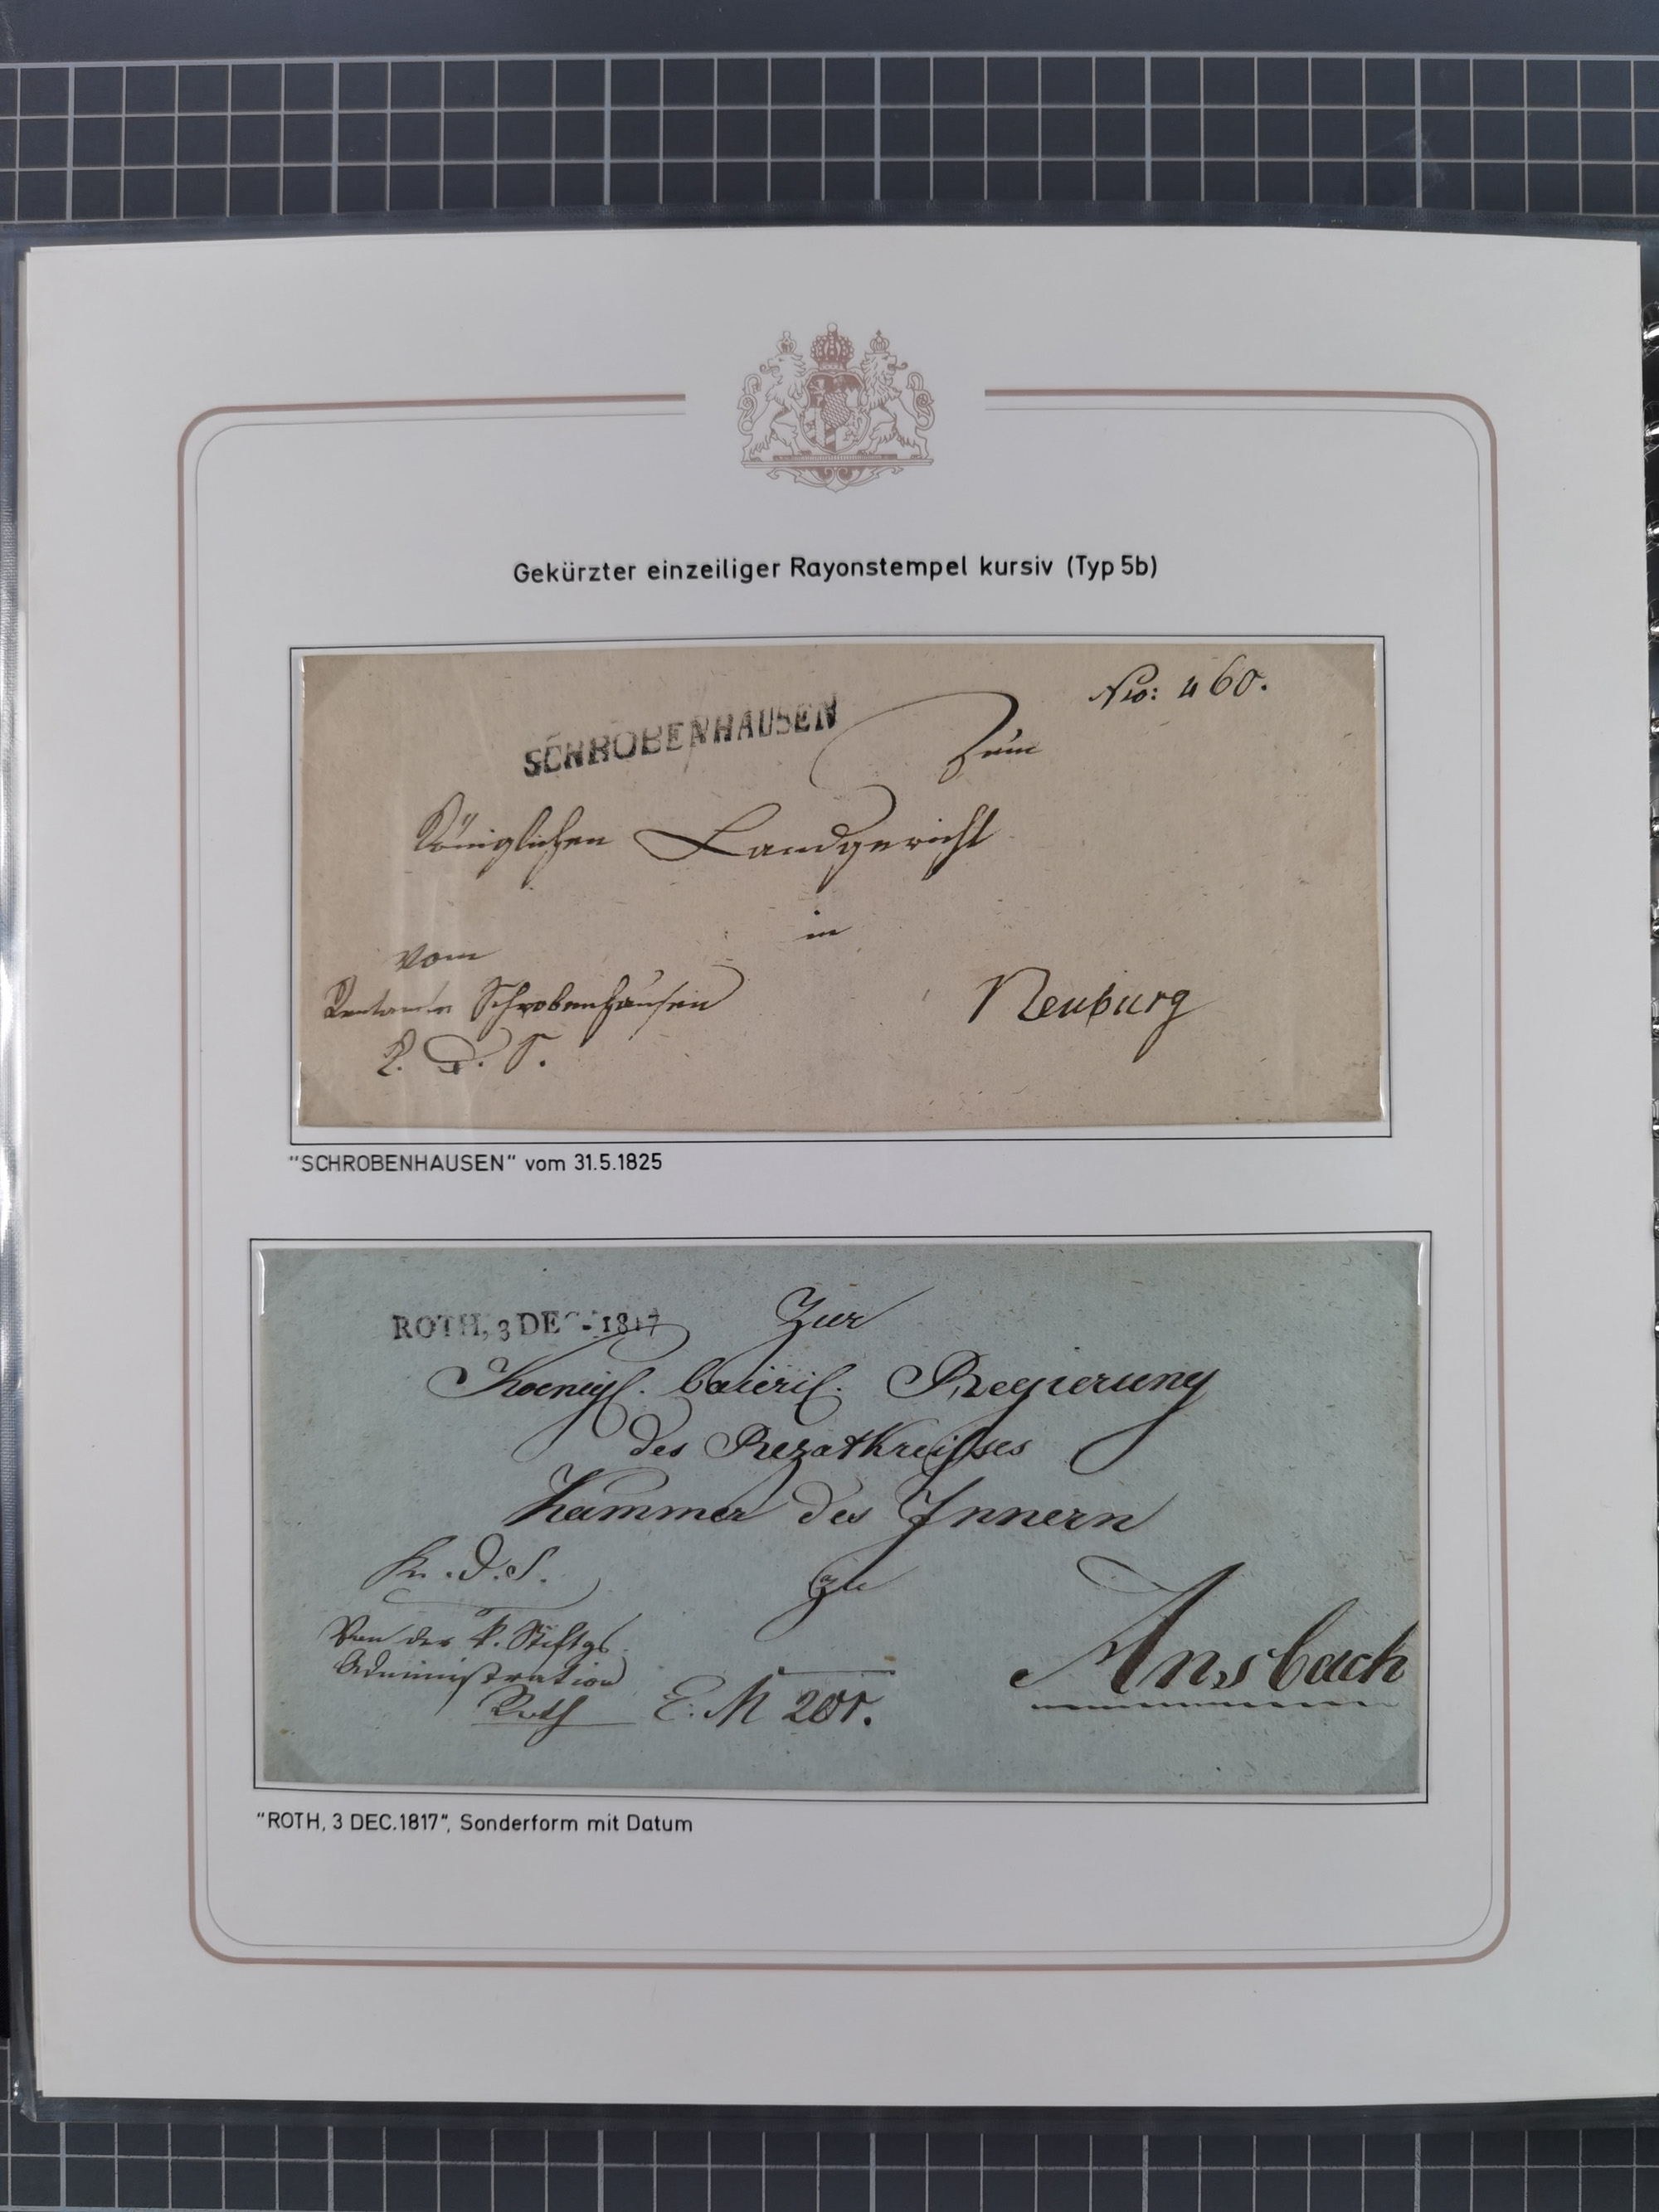 Gekürzter einzeiliger Rayonstempel kursiv (Typ 5b)
Nro: 460.
SCHROBENHAUSEN
Zum
Königlichen Landgericht
in
vom
Rentamte Schrobenhausen
Neuburg
R. D. S.
"SCHROBENHAUSEN" vom 31.5.1825
ROTH, 3 DEC - 1817
Zur
Koenigl. baieril. Regierung
des Rezatkreisses
Kammer des Innern
K. D. S.
zu
Von der k. Stiftgs
Administration
Ansbach
Roth
E. N 205.
"ROTH, 3 DEC.1817", Sonderform mit Datum